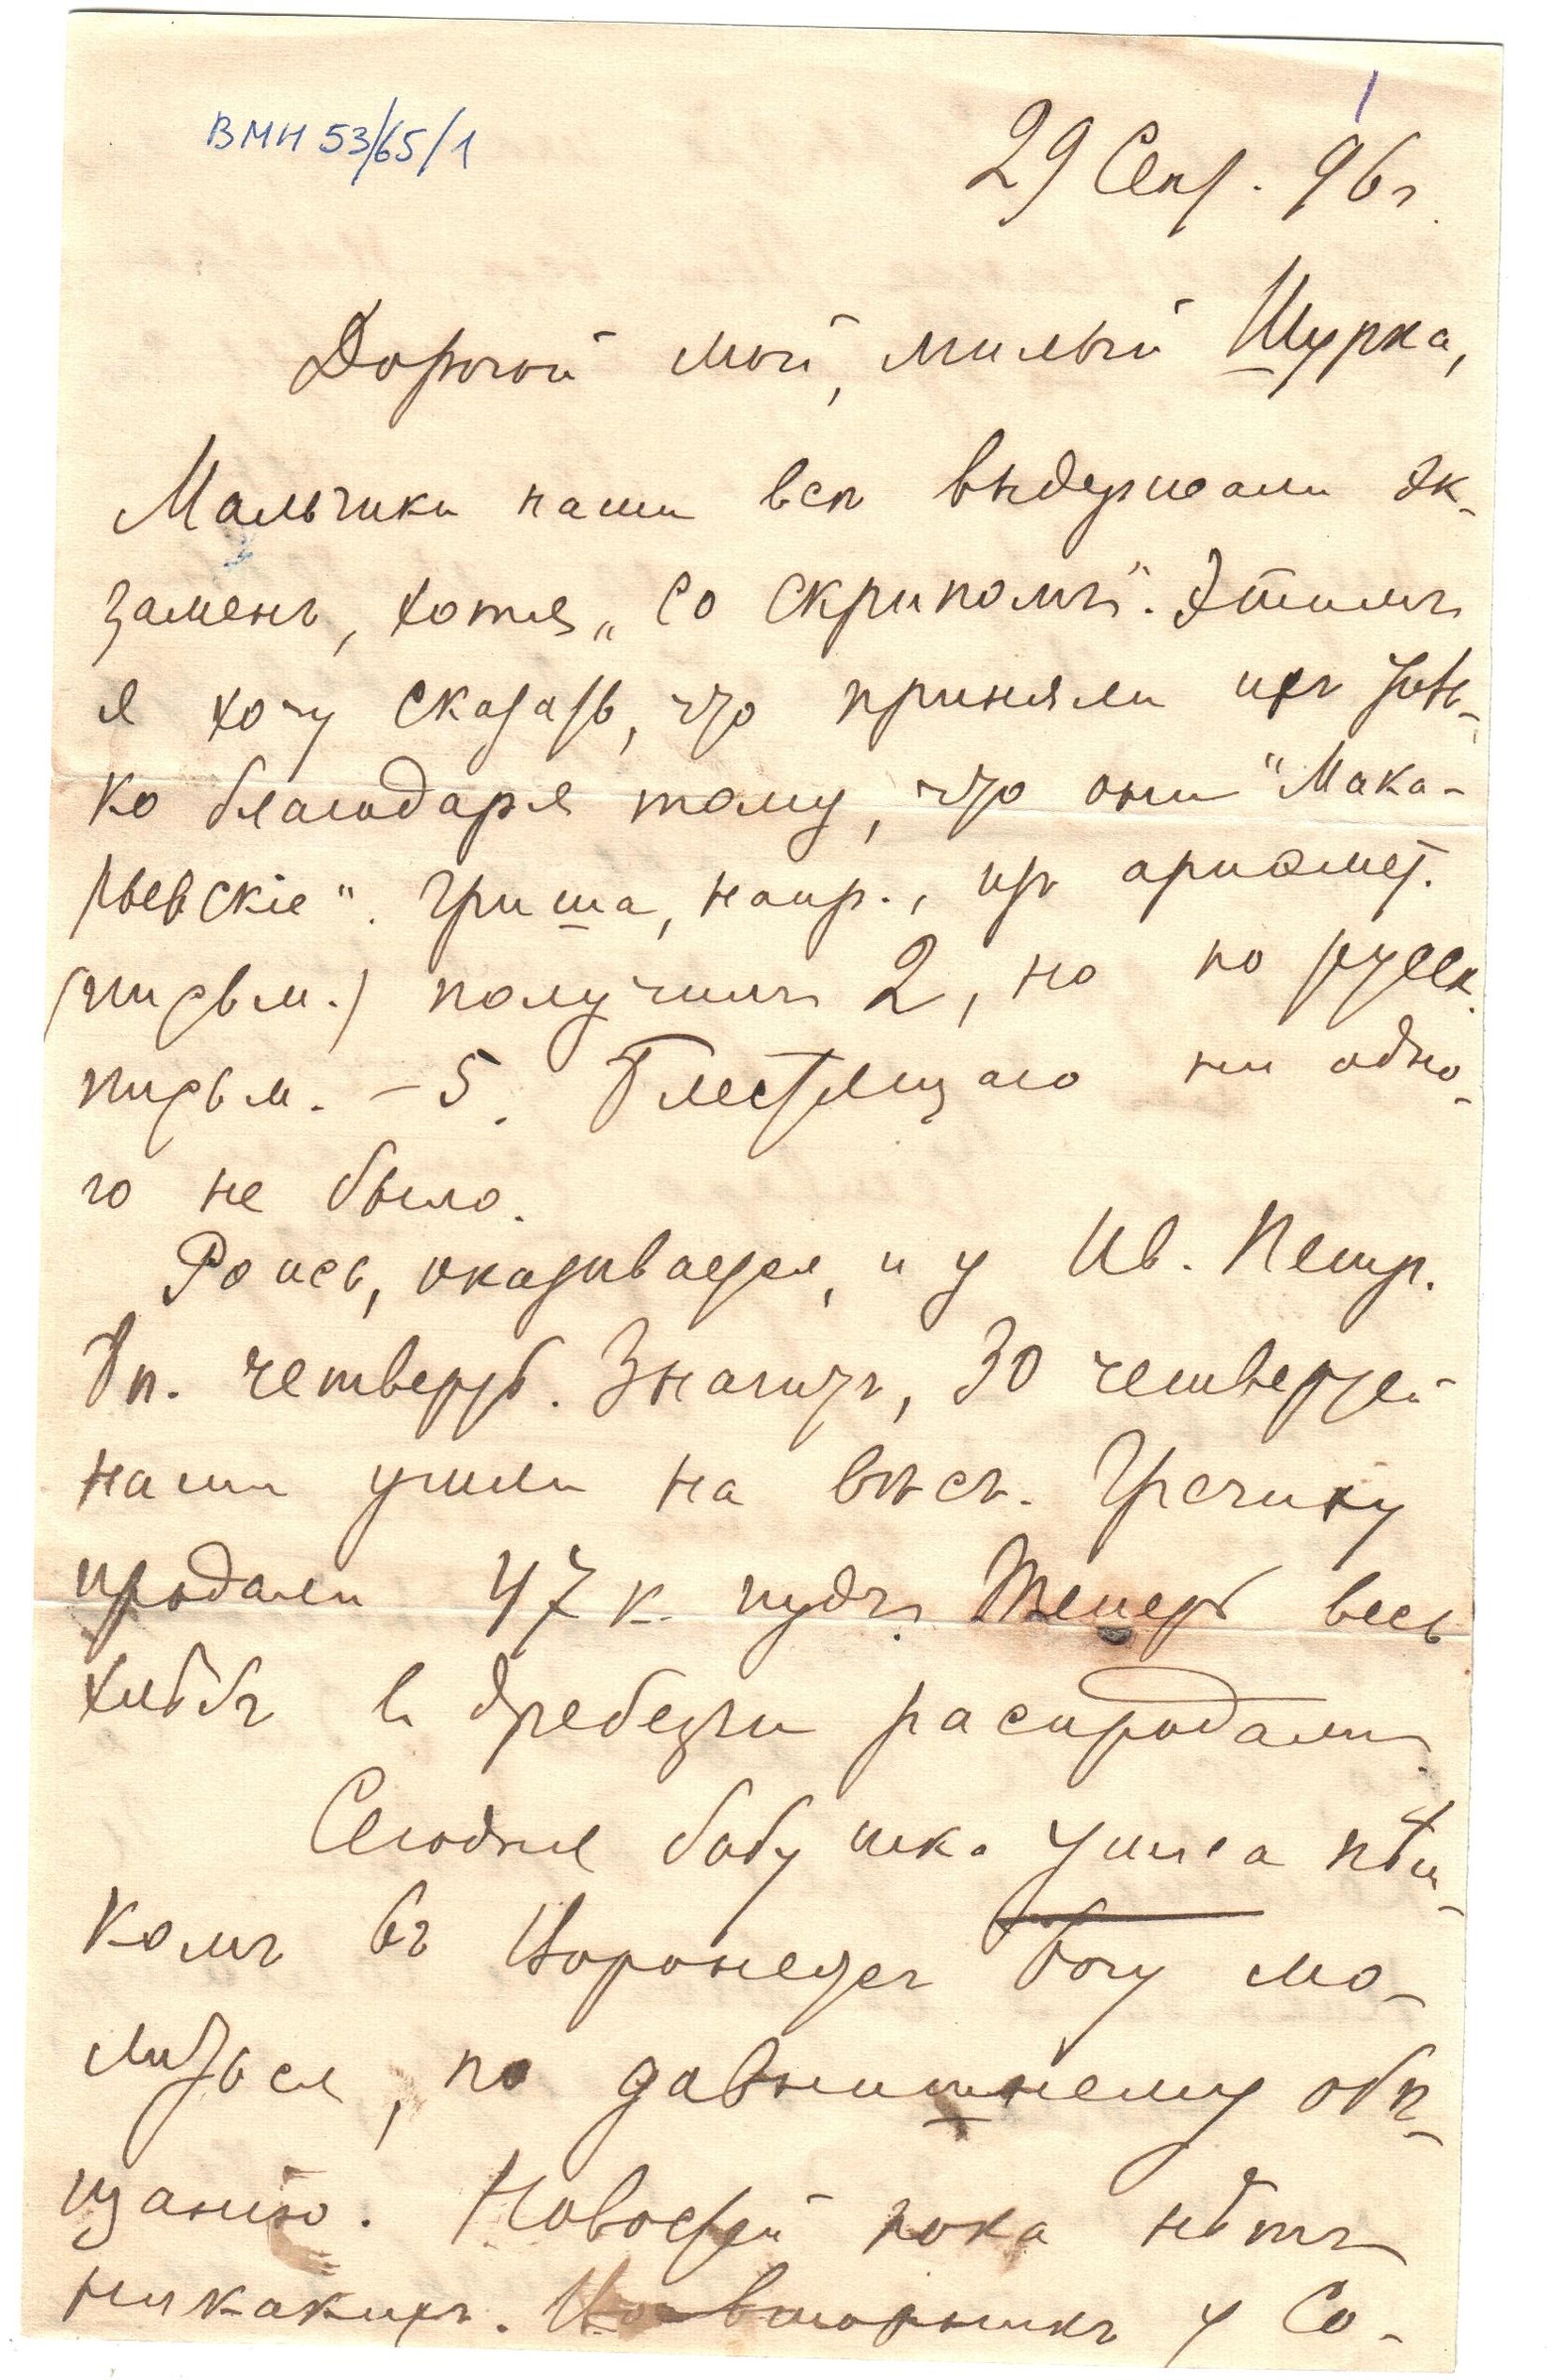 ВМН 53/65/1
29 Сент. 96 г.
Дорогой мой, милый Шурка,
Мальчики наши все выдержали эк-
заменъ, хотя „со скрипомъ". Этимъ
я хочу сказать, что приняли ихъ толь-
ко благодаря тому, что они "Мака-
рьевскіе". Гриша, напр., изъ ариѳмет.
(письм.) получилъ 2, но по русск.
письм. – 5. Блестящаго ни одно-
го не было.
Рожь, оказывается, и у Ив. Петр.
8 п. четверть. Значитъ, 30 четвертей
наши ушли на вѣсъ. Гречиху
продали 47 к. пудъ. Теперь весь
хлѣбъ въ дребезги распродали.
Сегодня бабушка ушла пѣш-
комъ въ Воронежъ Богу мо-
литься, по давнишнему обѣ-
щанію. Новостей пока нѣтъ
никакихъ. Во вторникъ у Со-